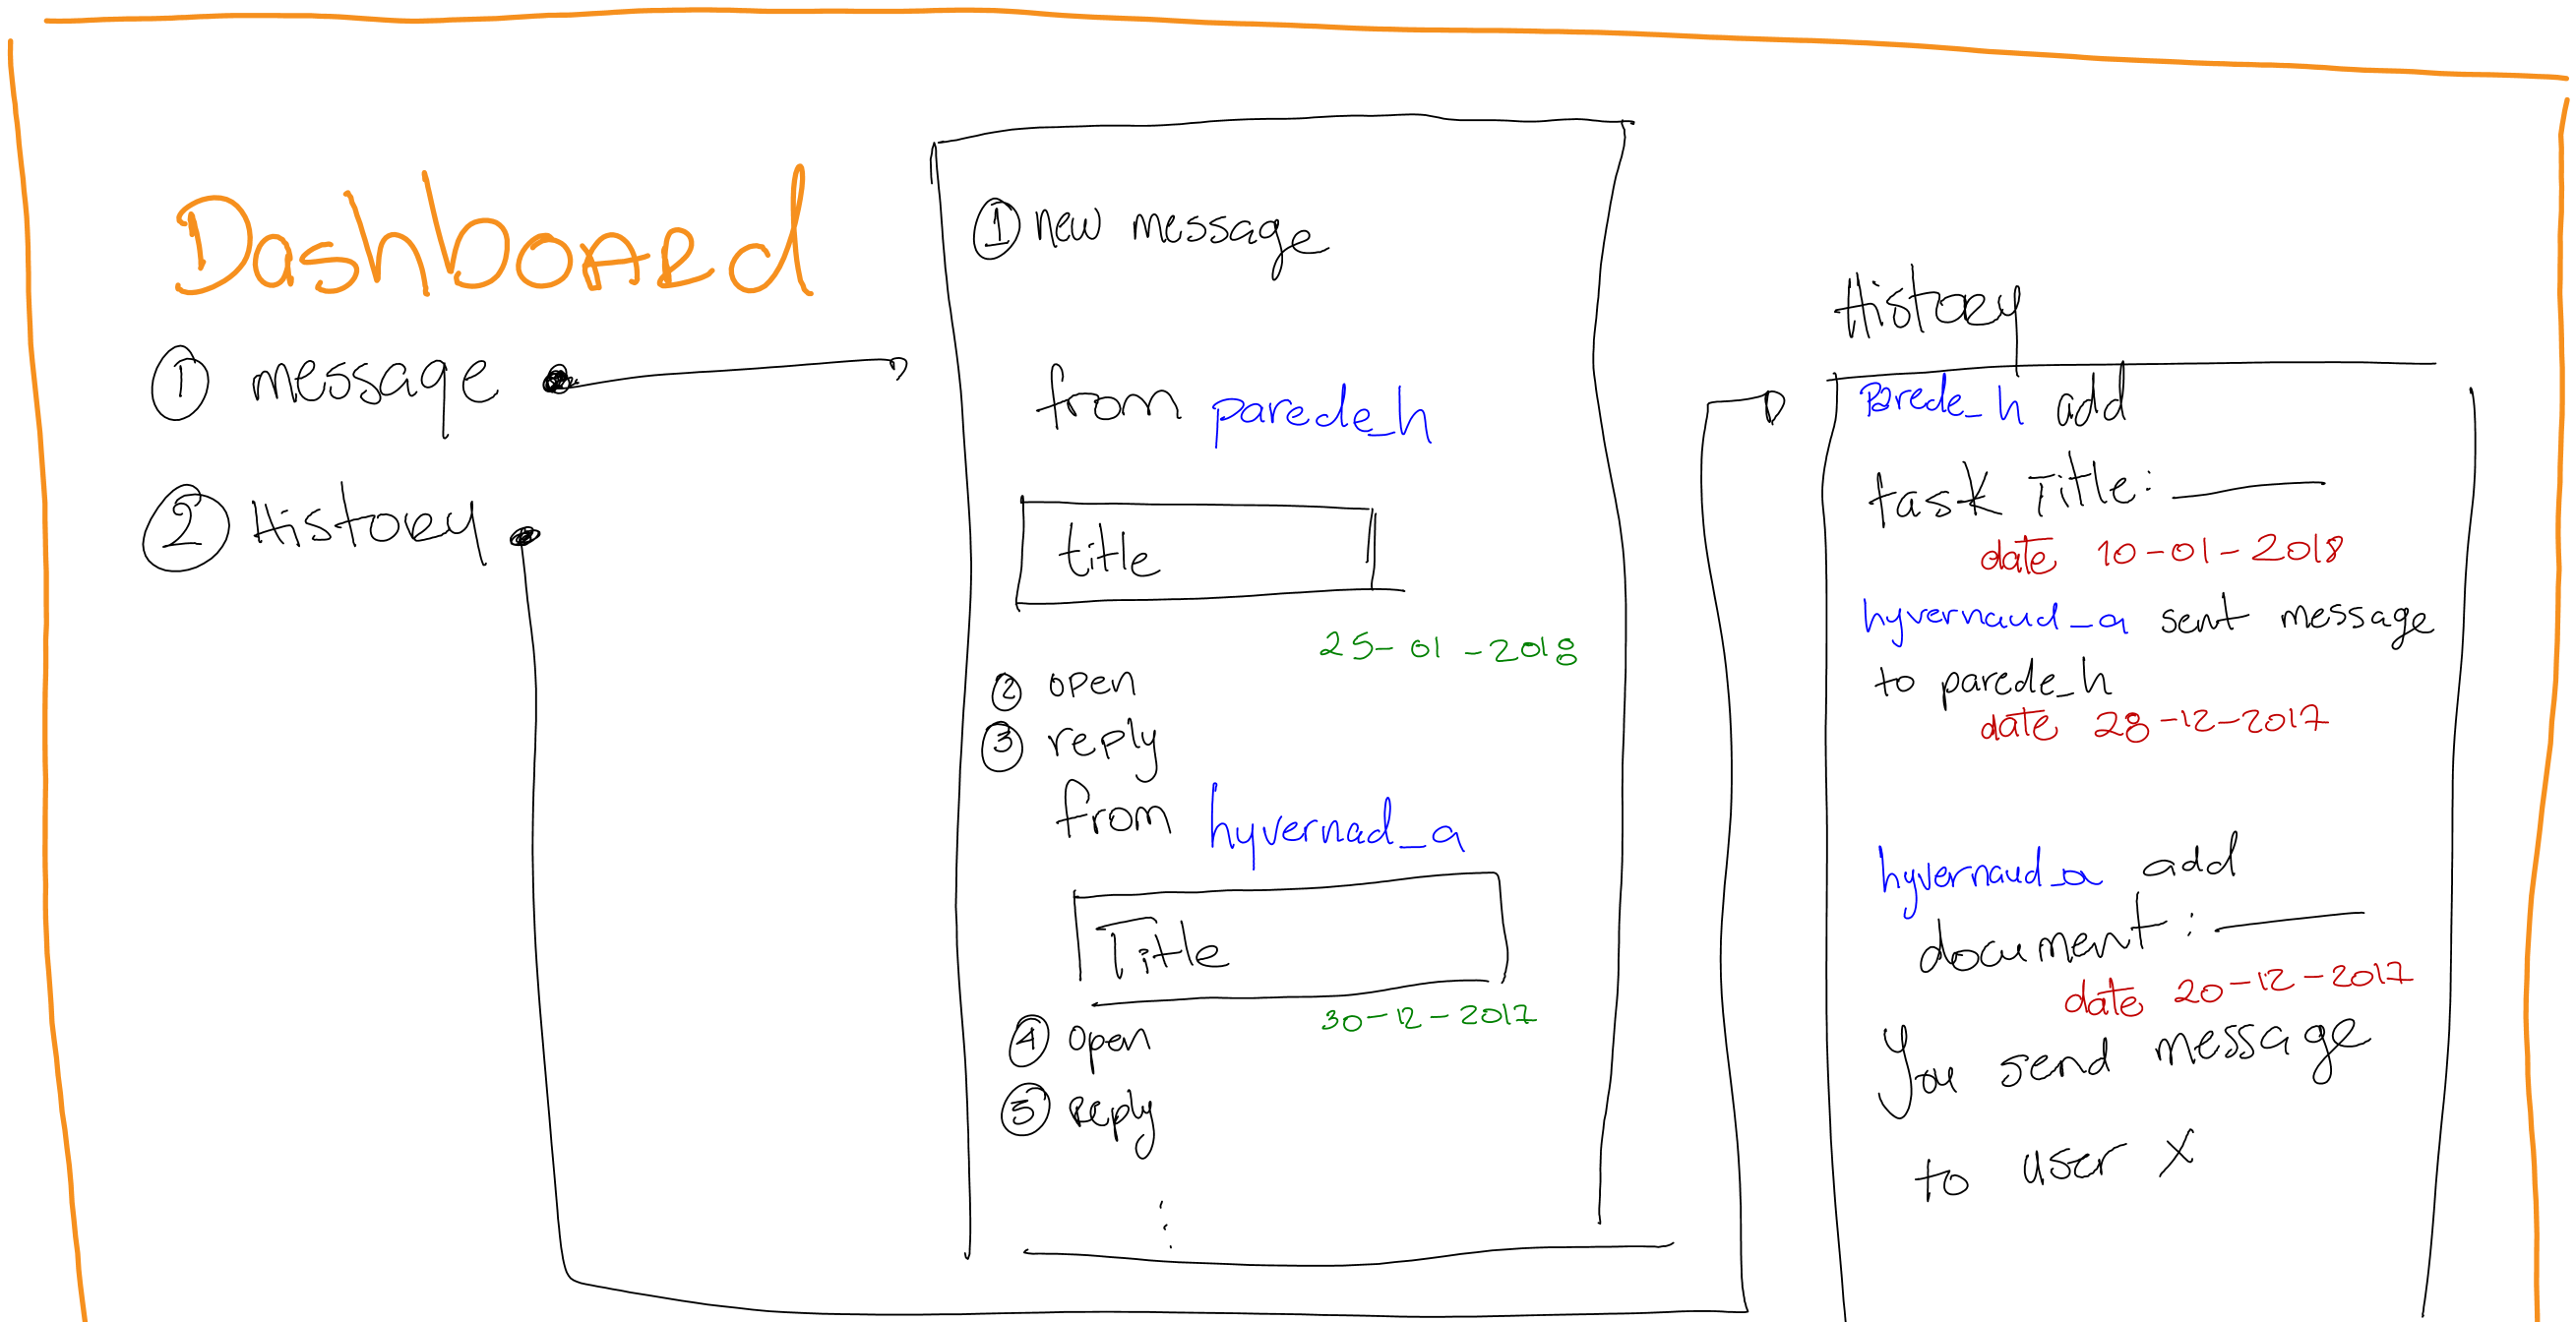 Dashboard
① message
② History
① new message
from parede_h
title
25-01-2018
② open
③ reply
from hyvernad_a
Title
30-12-2017
④ open
⑤ reply
⋮
History
Parede_h add
task Title: ———
date 10-01-2018
hyvernaud_a sent message
to parede_h
date 28-12-2017
hyvernaud_a add
document : ———
date 20-12-2017
You send message
to user x